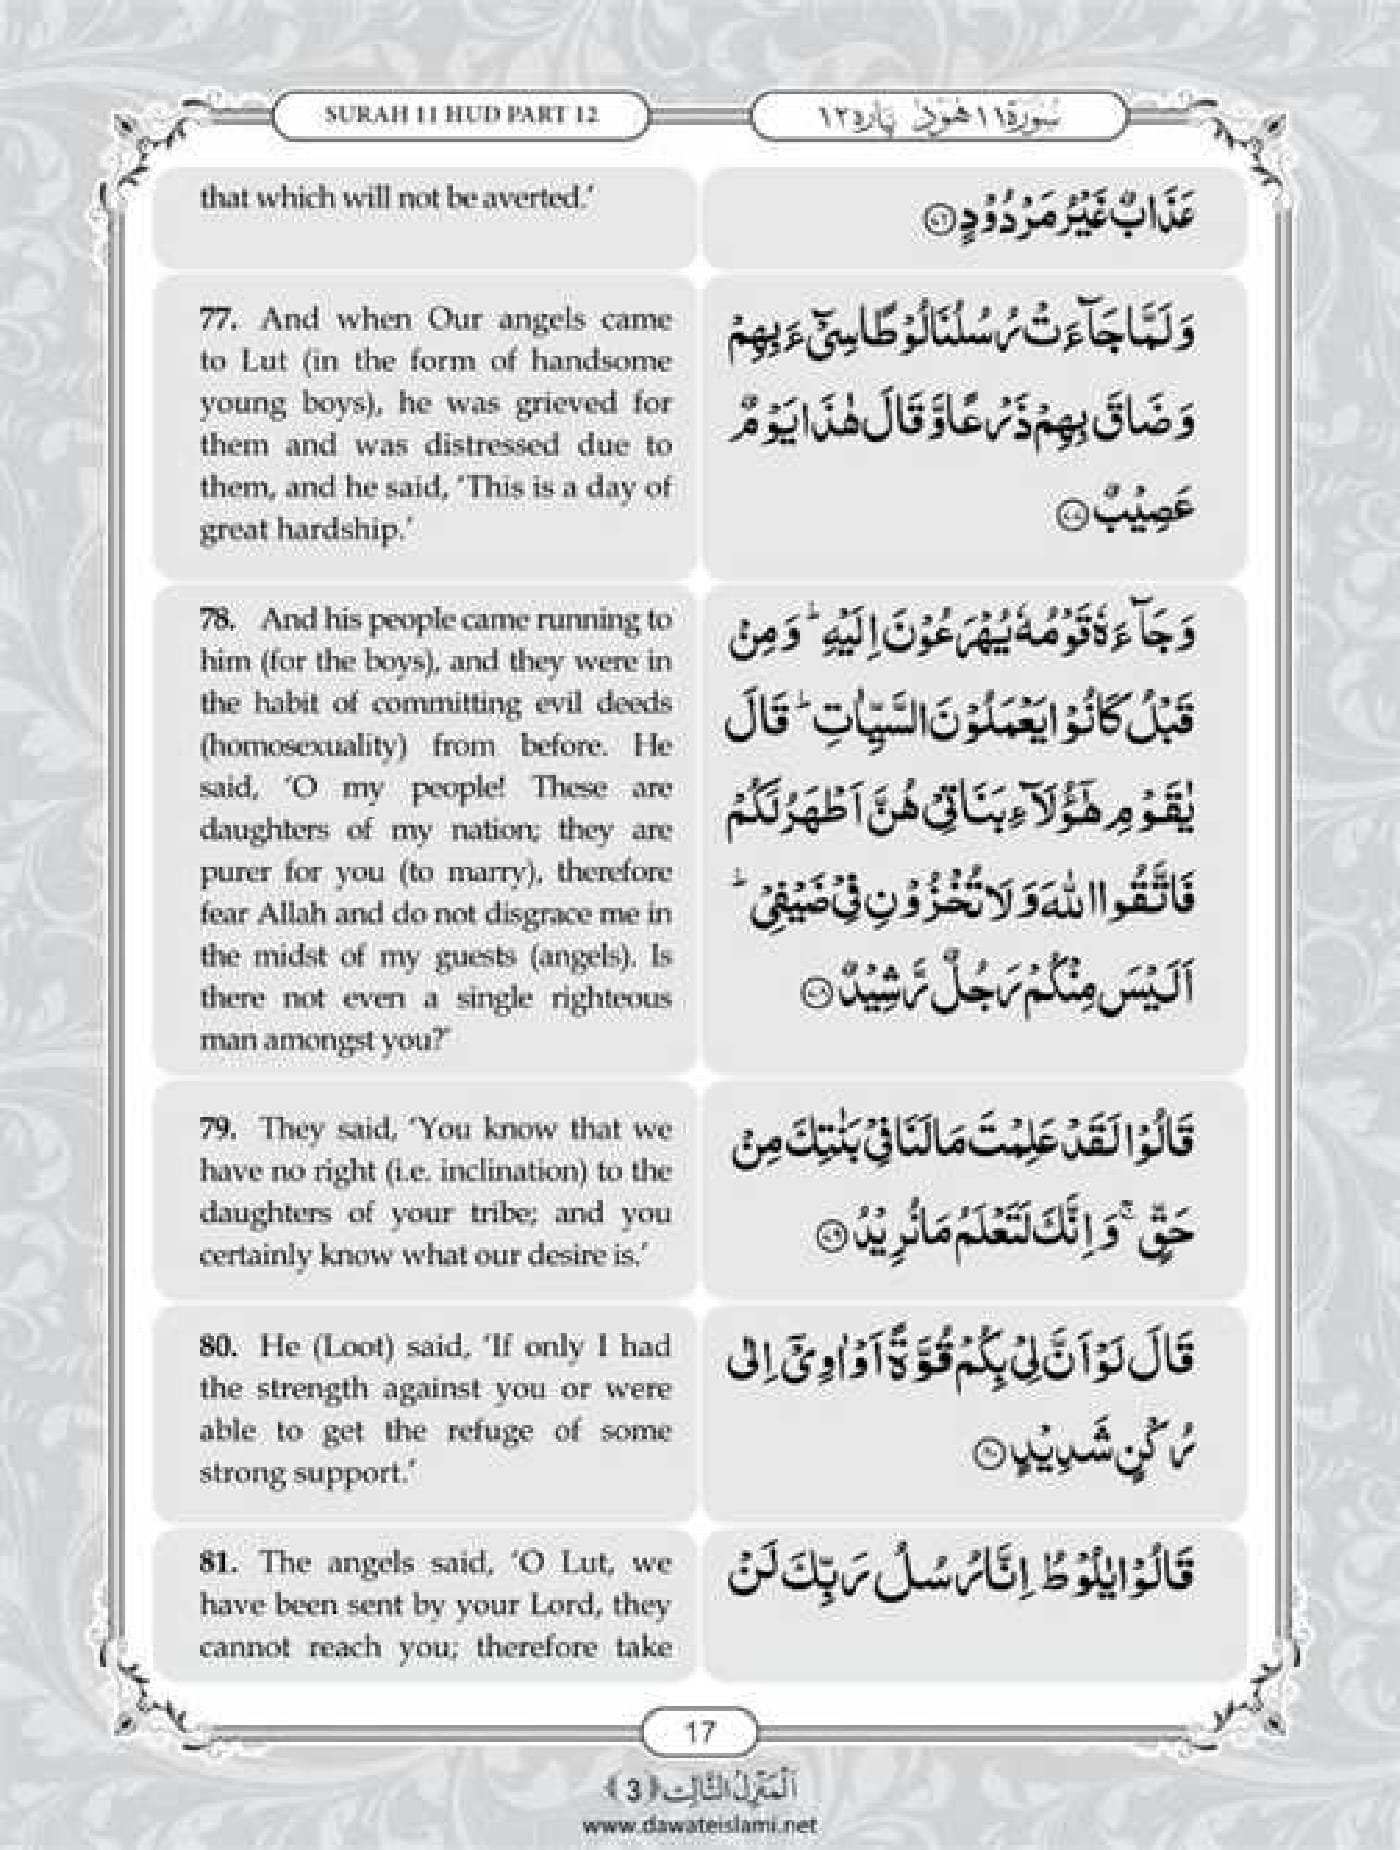 SURAH 11 HUD PART 12
سُوْرَةُ ١١ هُوْد پارہ ١٢
that which will not be averted.’
عَذَابٌ غَیْرُ مَرْدُوْدٍ ﴿۷۶﴾
77. And when Our angels came
to Lut (in the form of handsome
young boys), he was grieved for
them and was distressed due to
them, and he said, ‘This is a day of
great hardship.’
وَ لَمَّا جَآءَتْ رُسُلُنَا لُوْطًا سِیْٓءَ بِهِمْ
وَ ضَاقَ بِهِمْ ذَرْعًا وَّ قَالَ هٰذَا یَوْمٌ
عَصِیْبٌ ﴿۷۷﴾
78. And his people came running to
him (for the boys), and they were in
the habit of committing evil deeds
(homosexuality) from before. He
said, ‘O my people! These are
daughters of my nation; they are
purer for you (to marry), therefore
fear Allah and do not disgrace me in
the midst of my guests (angels). Is
there not even a single righteous
man amongst you?’
وَ جَآءَهٗ قَوْمُهٗ یُهْرَعُوْنَ اِلَیْهِ ؕ وَ مِنْ
قَبْلُ كَانُوْا یَعْمَلُوْنَ السَّیِّاٰتِ ؕ قَالَ
یٰقَوْمِ هٰۤؤُلَآءِ بَنَاتِیْ هُنَّ اَطْهَرُ لَكُمْ
فَاتَّقُوا اللّٰهَ وَ لَا تُخْزُوْنِ فِیْ ضَیْفِیْ ؕ
اَلَیْسَ مِنْكُمْ رَجُلٌ رَّشِیْدٌ ﴿۷۸﴾
79. They said, ‘You know that we
have no right (i.e. inclination) to the
daughters of your tribe; and you
certainly know what our desire is.’
قَالُوْا لَقَدْ عَلِمْتَ مَا لَنَا فِیْ بَنٰتِكَ مِنْ
حَقٍّ ۚ وَ اِنَّكَ لَتَعْلَمُ مَا نُرِیْدُ ﴿۷۹﴾
80. He (Loot) said, ‘If only I had
the strength against you or were
able to get the refuge of some
strong support.’
قَالَ لَوْ اَنَّ لِیْ بِكُمْ قُوَّةً اَوْ اٰوِیْۤ اِلٰى
رُكْنٍ شَدِیْدٍ ﴿۸۰﴾
81. The angels said, ‘O Lut, we
have been sent by your Lord, they
cannot reach you; therefore take
قَالُوْا یٰلُوْطُ اِنَّا رُسُلُ رَبِّكَ لَنْ
17
اَلْمَنْزِلُ الثَّالِث ﴿3﴾
www.dawateislami.net